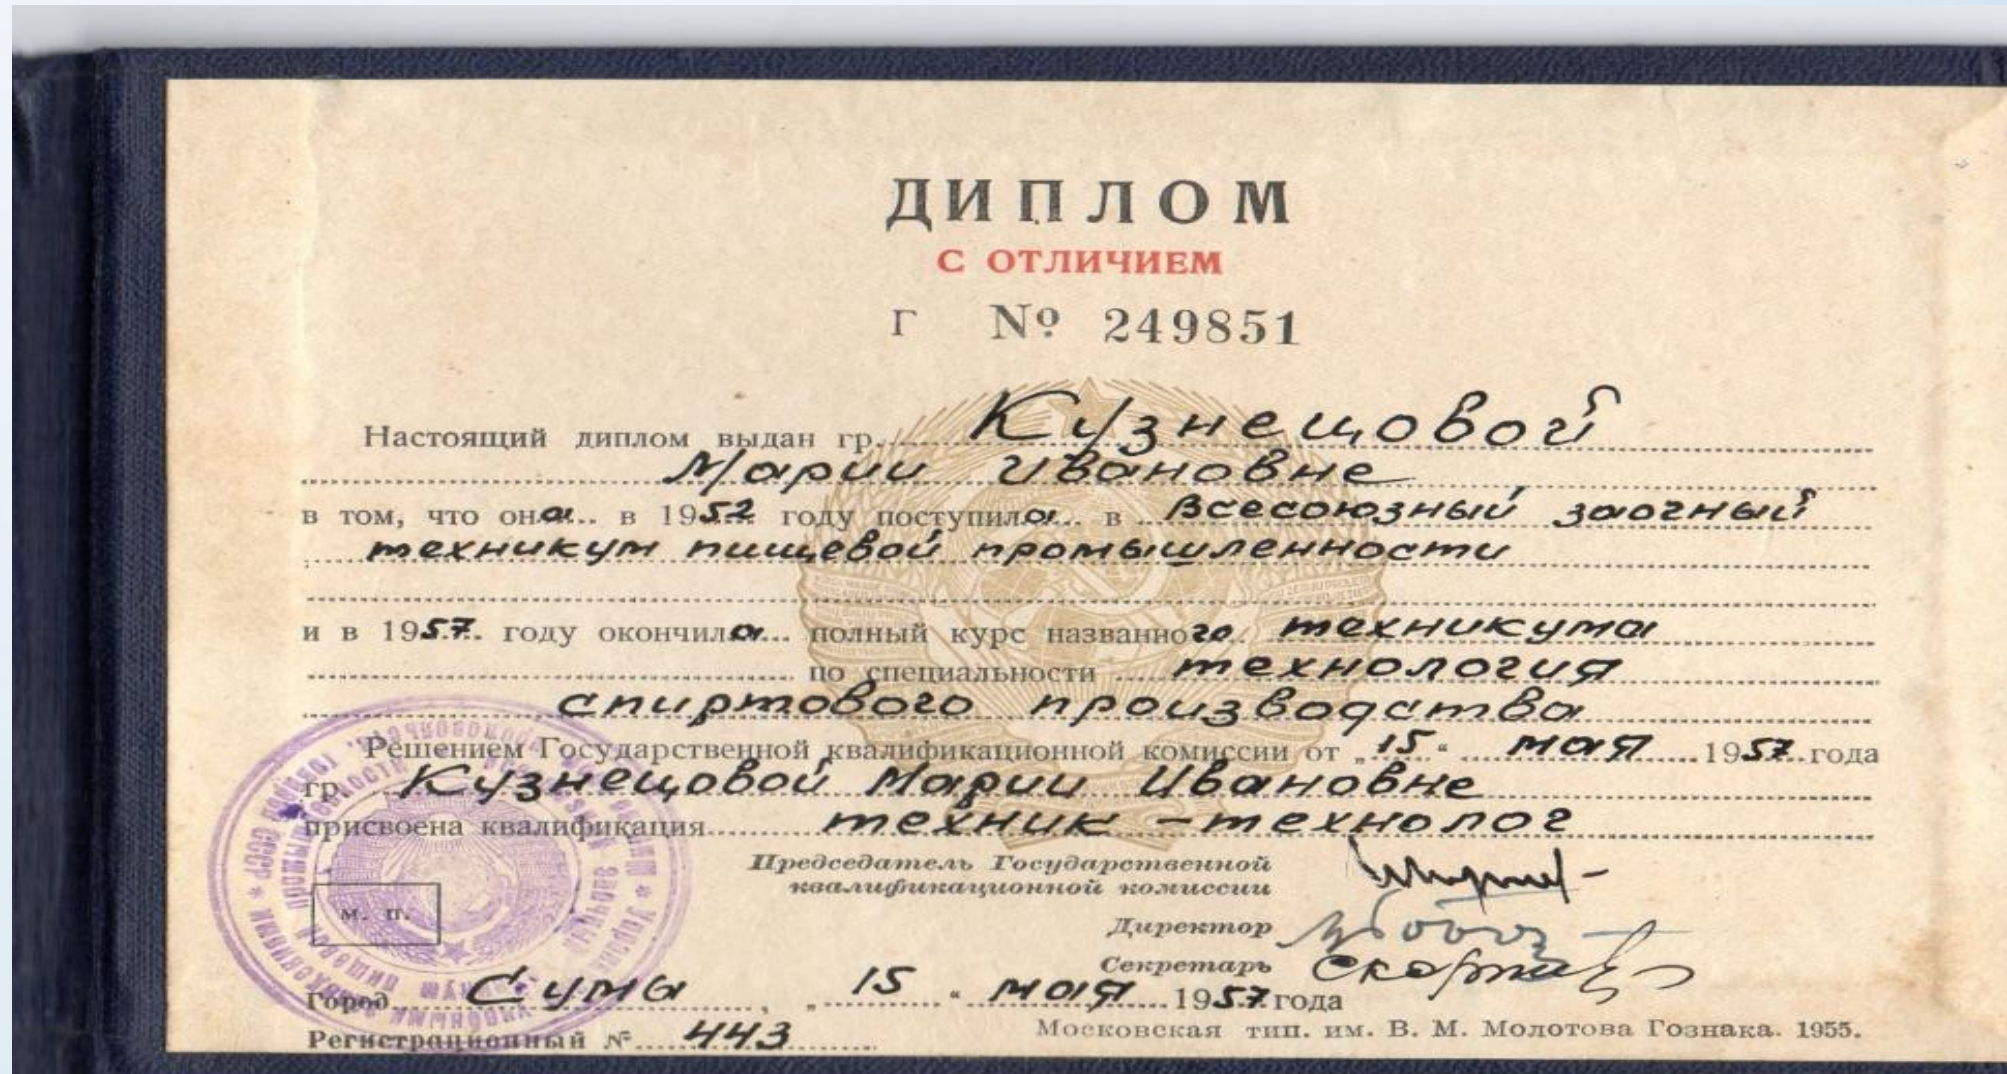 ДИПЛОМ
С ОТЛИЧИЕМ
Г № 249851
Настоящий диплом выдан гр. Кузнецовой
Марии Ивановне
в том, что она в 1952 году поступила в Всесоюзный заочный
техникум пищевой промышленности
и в 1957 году окончила полный курс названного техникума
по специальности технология
спиртового производства
Решением Государственной квалификационной комиссии от „15“ мая 1957 года
гр. Кузнецовой Марии Ивановне
присвоена квалификация техник-технолог
Председатель Государственной
квалификационной комиссии
Директор
м. п.
Секретарь
Город Сумы, „15“ мая 1957 года
Регистрационный № 443
Московская тип. им. В. М. Молотова Гознака. 1955.